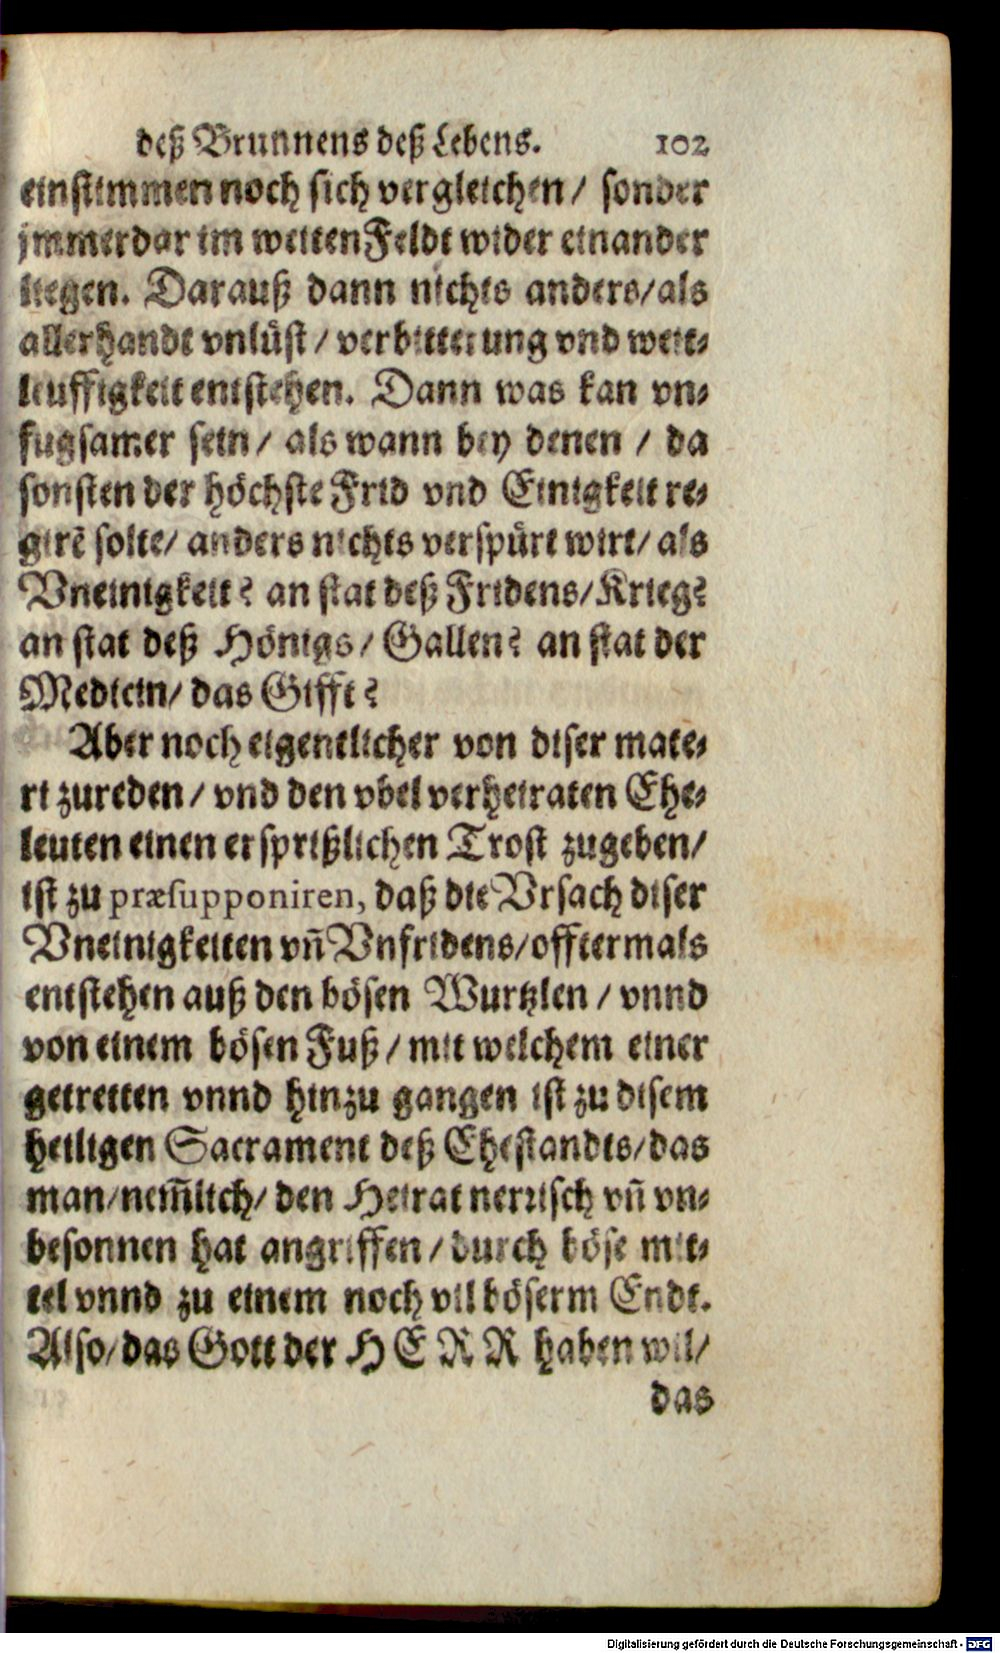 deß Brunnens deß Lebens. 102
einstimmen noch sich vergleichen/ sonder
jmmerdar im weiten Feldt wider einander
liegen. Darauß dann nichts anders/als
allerhandt vnlüst/ verbitterung vnd weit-
leuffigkeit entstehen. Dann was kan vn-
fugsamer sein/ als wann bey denen / da
sonsten der höchste Frid vnd Einigkeit re-
girẽ solte/ anders nichts verspürt wirt/ als
Vneinigkeit? an stat deß Fridens/Krieg?
an stat deß Hönigs/ Gallen? an stat der
Medicin/ das Gifft?
Aber noch eigentlicher von diser mate-
ri zureden/ vnd den vbel verheiraten Ehe-
leuten einen ersprißlichen Trost zugeben/
ist zu præsupponiren, daß die Vrsach diser
Vneinigkeiten vñ Vnfridens/offtermals
entstehen auß den bösen Wurtzlen / vnnd
von einem bösen Fuß/ mit welchem einer
getretten vnnd hinzu gangen ist zu disem
heiligen Sacrament deß Ehestandts/das
man/nem̃lich/ den Heirat nerrisch vñ vn-
besonnen hat angriffen/ durch böse mit-
tel vnnd zu einem noch vil böserm Endt.
Also/das Gott der HERR haben wil/
das
Digitalisierung gefördert durch die Deutsche Forschungsgemeinschaft - DFG